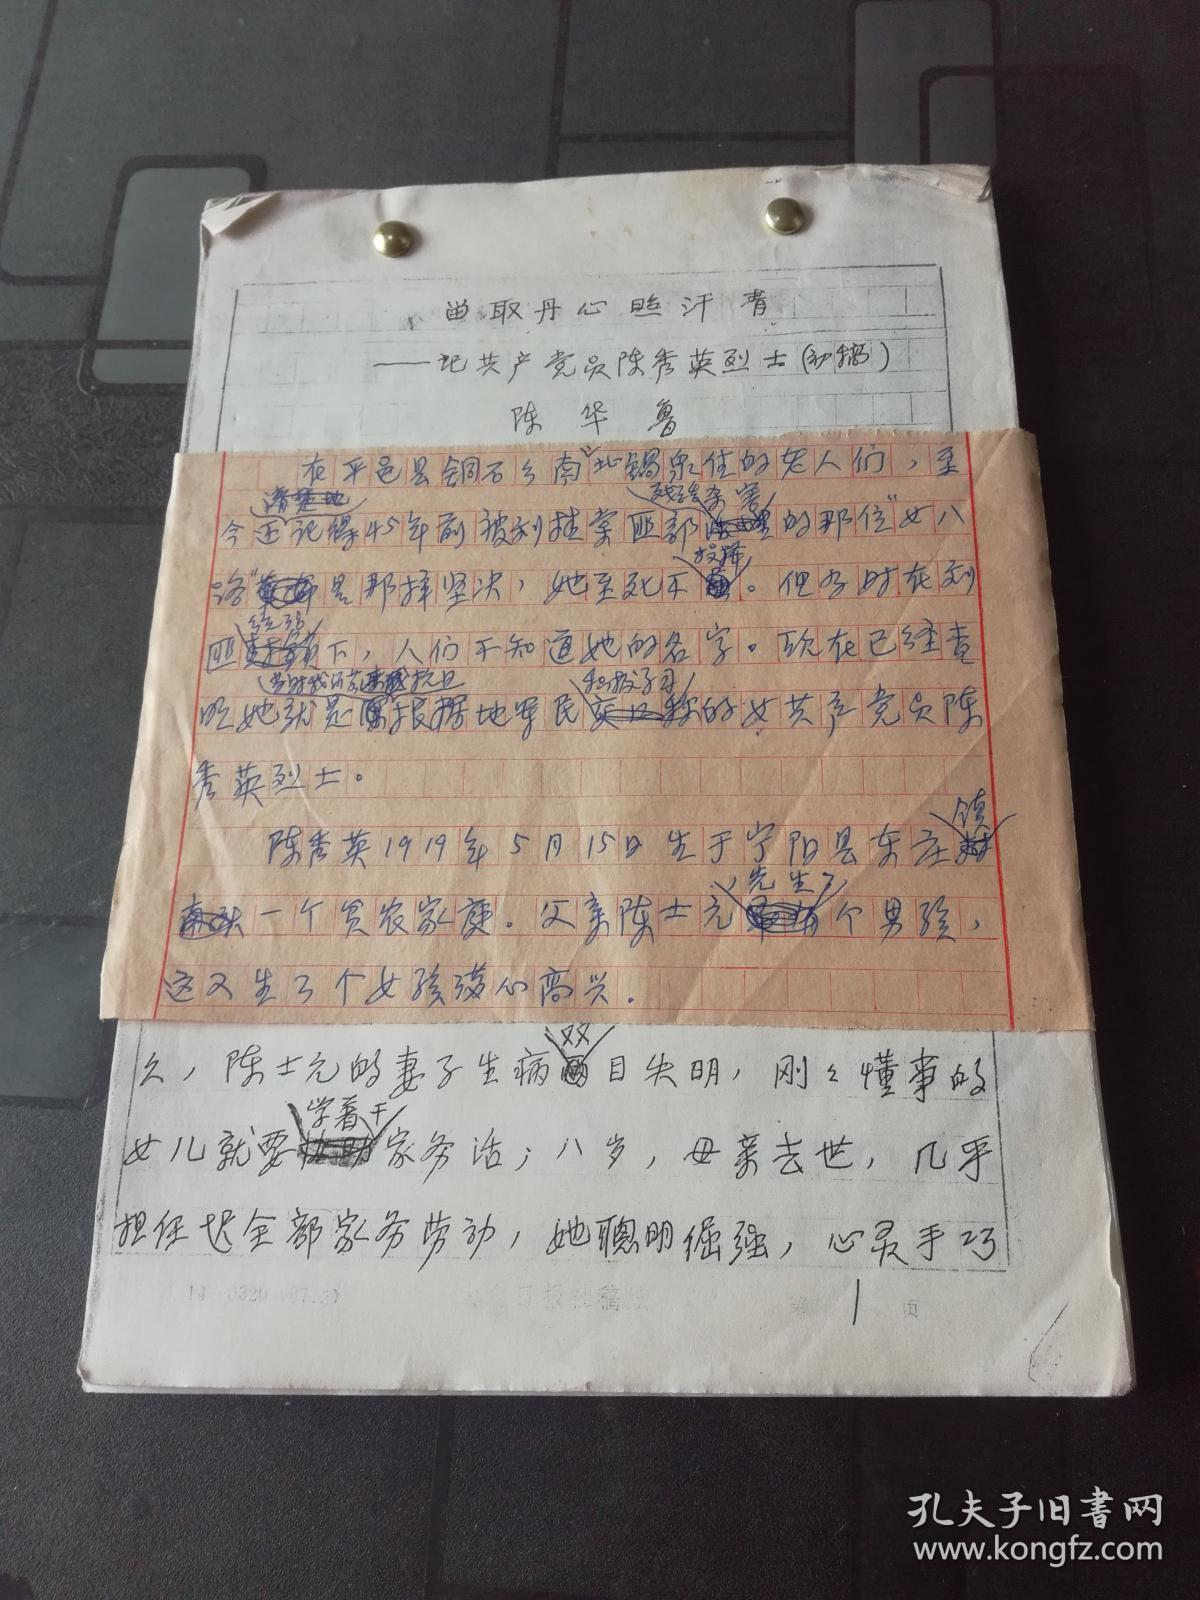 留取丹心照汗青
——记共产党员陈秀英烈士(初稿)
陈华鲁
在平邑县铜石乡南、北锅泉住的老人们，至
清楚地 残酷杀害
今还记得45年前被刘桂棠匪部的那位"女八
投降
路"是那样坚决，她至死不。但当时在刘
统治
匪下，人们不知道她的名字。现在已经查
抗日
明她就是根据地军民称的女共产党员陈
秀英烈士。
镇
陈秀英1919年5月15日生于宁阳县东庄
先生了
一个贫农家庭。父亲陈士元个男孩，
这又生了个女孩满心高兴。
双
久，陈士元的妻子生病目失明，刚々懂事的
学着干
女儿就要家务活；八岁，母亲去世，几乎
担任起全部家务劳动，她聪明倔强，心灵手巧
14—0320(87.5) 日报社稿 第1页
孔夫子旧书网
www.kongfz.com